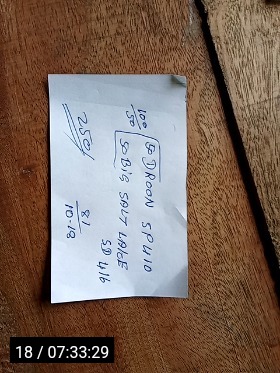 100
50
50 DROON SP410
50 BIG SALT LAKE
SD 416
250/
81
10-12
18 / 07:33:29